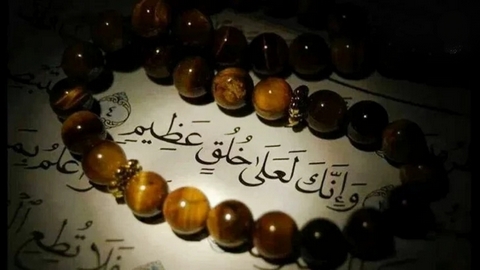 وَإِنَّكَ لَعَلَىٰ خُلُقٍ عَظِيمٍ ٤
أَعْلَمُ
فَلَا تُطِعِ